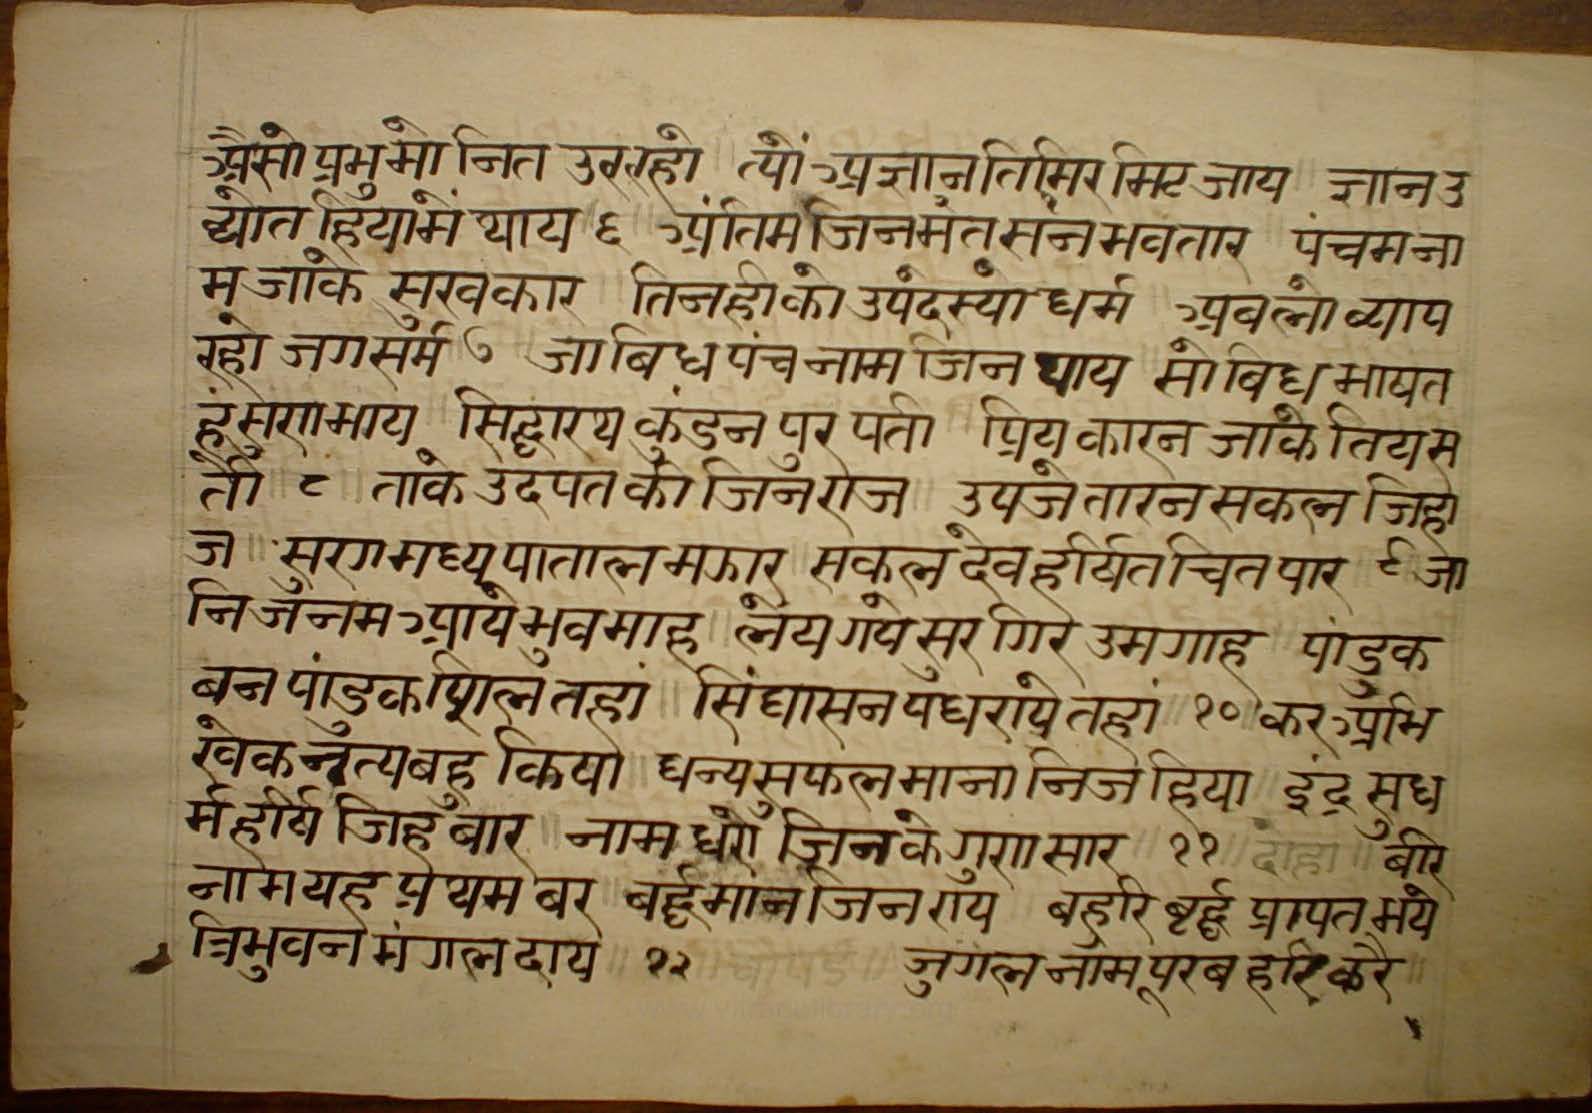 अैसो प्रभु मो नित उर रहो ॥ त्यों अज्ञान तिमिर मिट जाय ॥ ज्ञान उ
द्योत हिया में थाय ६ अंतिम जिन मंत संनमवतार पंचम ना
म जाके सुखकार ॥ तिनही को उपदेस्यो धर्म अबलो व्याप
रहो जग सर्म ७ जा बिध पंच नाम जिन पाय सो बिध भाषत
हूं सुण भाय सिद्धारथ कुंडनपुर पती प्रिय कारन जाके तिय स
ती ८ ताके उद पत की जिनराज उपजे तारन सकल जिहा
ज ॥ सुरग मध्य पाताल मझार सकल देव हर्यित चित पार ९ जा
नि जनम आये भुव माह लेय गये सुर गिर उमगाह पांडुक
बन पांडुक शिल तहां ॥ सिंघासन पधराये तहां १० कर अभि
खेक नृत्य बहु कियो धन्य सुफल मानो निज हिया इंद्र सुध
र्म हर्यि जिह बार ॥ नाम धरो जिनके गुण सार ११ दोहा ॥ बीर
नाम यह प्रथम बर बर्द्धमान जिनराय बहुरि बृर्द्ध प्रापत भये
त्रिभुवन मंगल दाय १२ ॥ चौपई ॥ जुगल नाम पूरब हरि करै ॥